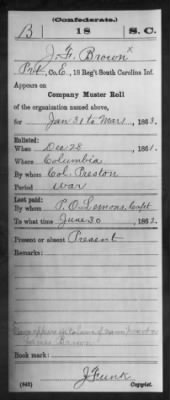 (Confederate.)
B 18 S.C.
J. F. Brown x
Pvt, Co. C, 18 Reg't South Carolina Inf.
Appears on
Company Muster Roll
of the organization named above,
for Jan 31 to Mar 1, 1863.
Enlisted:
When Dec 28, 1861.
Where Columbia
By whom Col. Preston
Period war
Last paid:
By whom P. O. Lemons, Capt
To what time June 30, 1862.
Present or absent Present
Remarks:
Name appears in column of names present as
James Brown
Book mark:
(642) J Funk
Copyist.